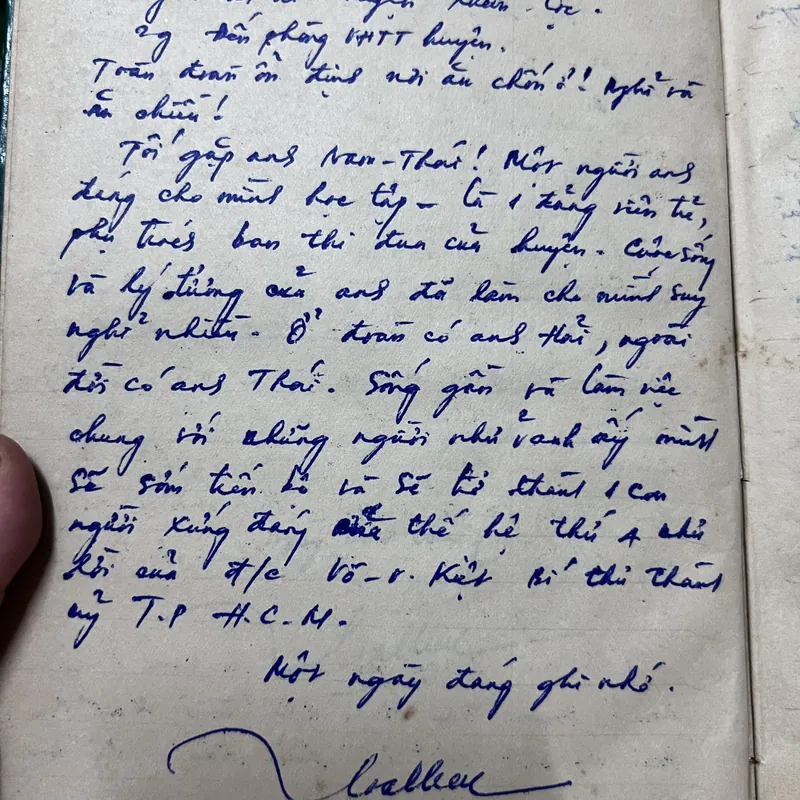 huyện Xuân-Lộc.
2g Đến phòng VHTT huyện.
Toàn đoàn ổn định nơi ăn chốn ở! Nghỉ và
ăn chiều!
Tối gặp anh Nam-Thái! Một người anh
đáng cho mình học tập - là 1 đảng viên trẻ,
phụ trách ban thi đua của huyện. Cuộc sống
và lý tưởng của anh đã làm cho mình suy
nghĩ nhiều. Ở đoàn có anh Hải, ngoài
đời có anh Thái. Sống gần và làm việc
chung với những người như anh ấy mình
sẽ sớm tiến bộ và sẽ trở thành 1 con
người xứng đáng thế hệ thứ 4 như
lời của đ/c Võ-v. Kiệt Bí thư thành
uỷ T.P H.C.M.
Một ngày đáng ghi nhớ.